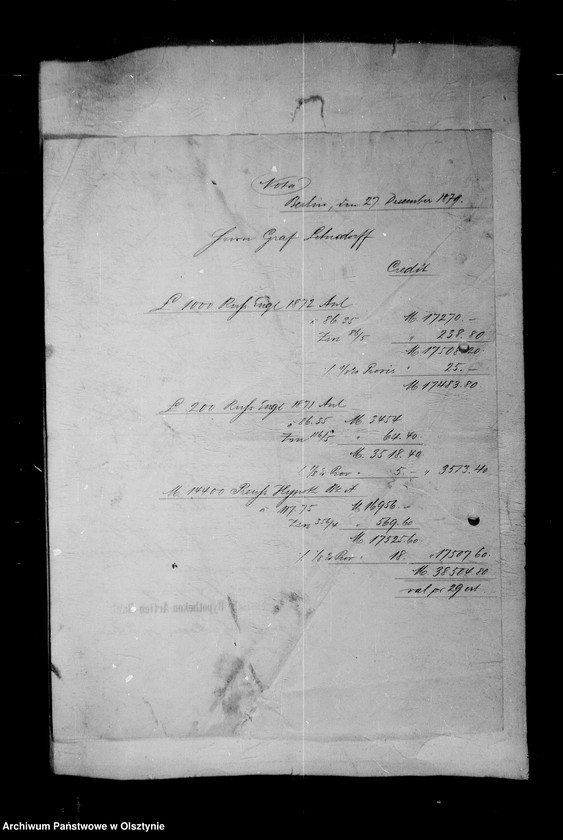 Nota
Berlin, den 27. Dezember 1879.
Herrn Graf Lehndorff
Credit
£ 1000 Russ Engl 1872 Anl
à 86.35 M. 17270.—
Zin 86/5 " 238.80
M. 17508.80
1 1/2 ‰ Prov " 25.—
M. 17483.80
£ 200 Russ Engl 1871 Anl
à 86.35 M. 3454
Zin 116/5 " 64.40.
M. 3518.40.
1 ‰ Prov " 5.— " 3513.40
M. 14400 Preuss Hypoth
à 117.75 M. 16956.—
Zin " 569.60
M. 17525.60
Prov " 18. " 17507.60
M. 38504.80
val pr 29 crt
Hypotheken-Actien
Archiwum Państwowe w Olsztynie